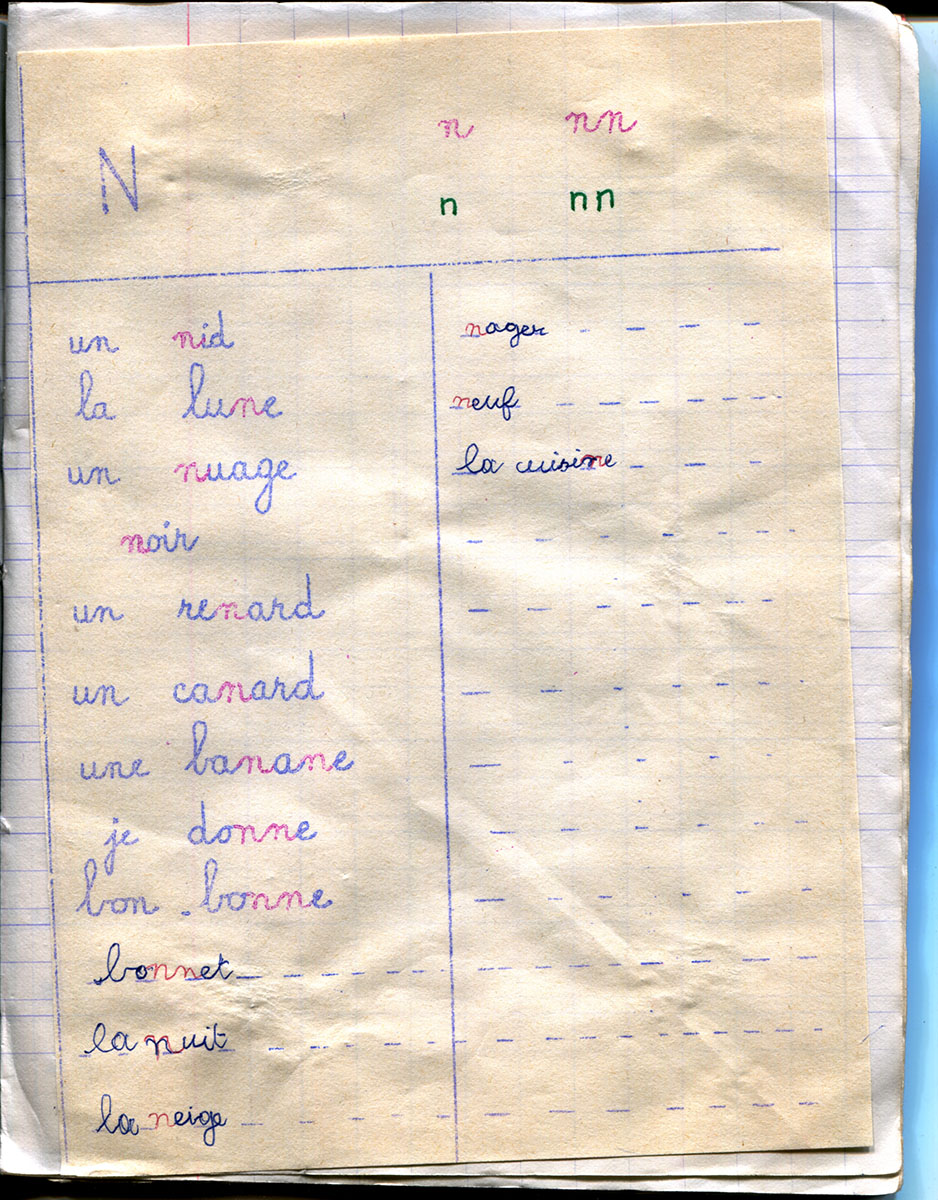 n nn
N
n nn
un nid
la lune
un nuage
noir
un renard
un canard
une banane
je donne
bon - bonne
bonnet
la nuit
la neige
nager
neuf
la cuisine